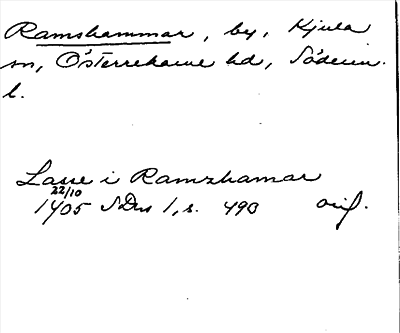 Ramshammar, by, Kjula
sn, Österrekarne hd, Söderm.
l.
Lasse i Ramzhamar
22/10
1405 SDns 1, s. 490 orig.